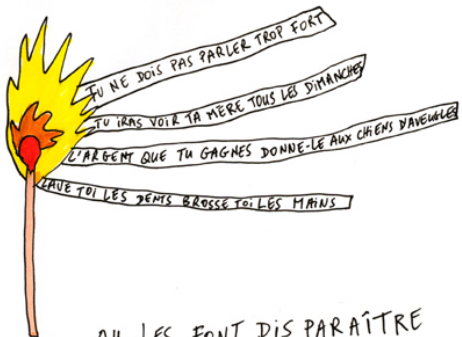 TU NE DOIS PAS PARLER TROP FORT
TU IRAS VOIR TA MÈRE TOUS LES DIMANCHES
L'ARGENT QUE TU GAGNES DONNE-LE AUX CHIENS D'AVEUGLES
LAVE TOI LES DENTS BROSSE TOI LES MAINS
OU LES FONT DISPARAÎTRE